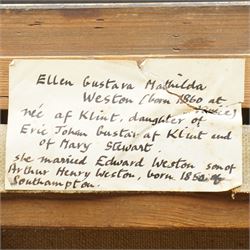 Ellen Gustava Mathilda
Weston (born 1860 at
née af Klint, daughter of
Eric Johan Gustaf af Klint and
of Mary Stewart
she married Edward Weston son of
Arthur Henry Weston, born 1850 of
Southampton.